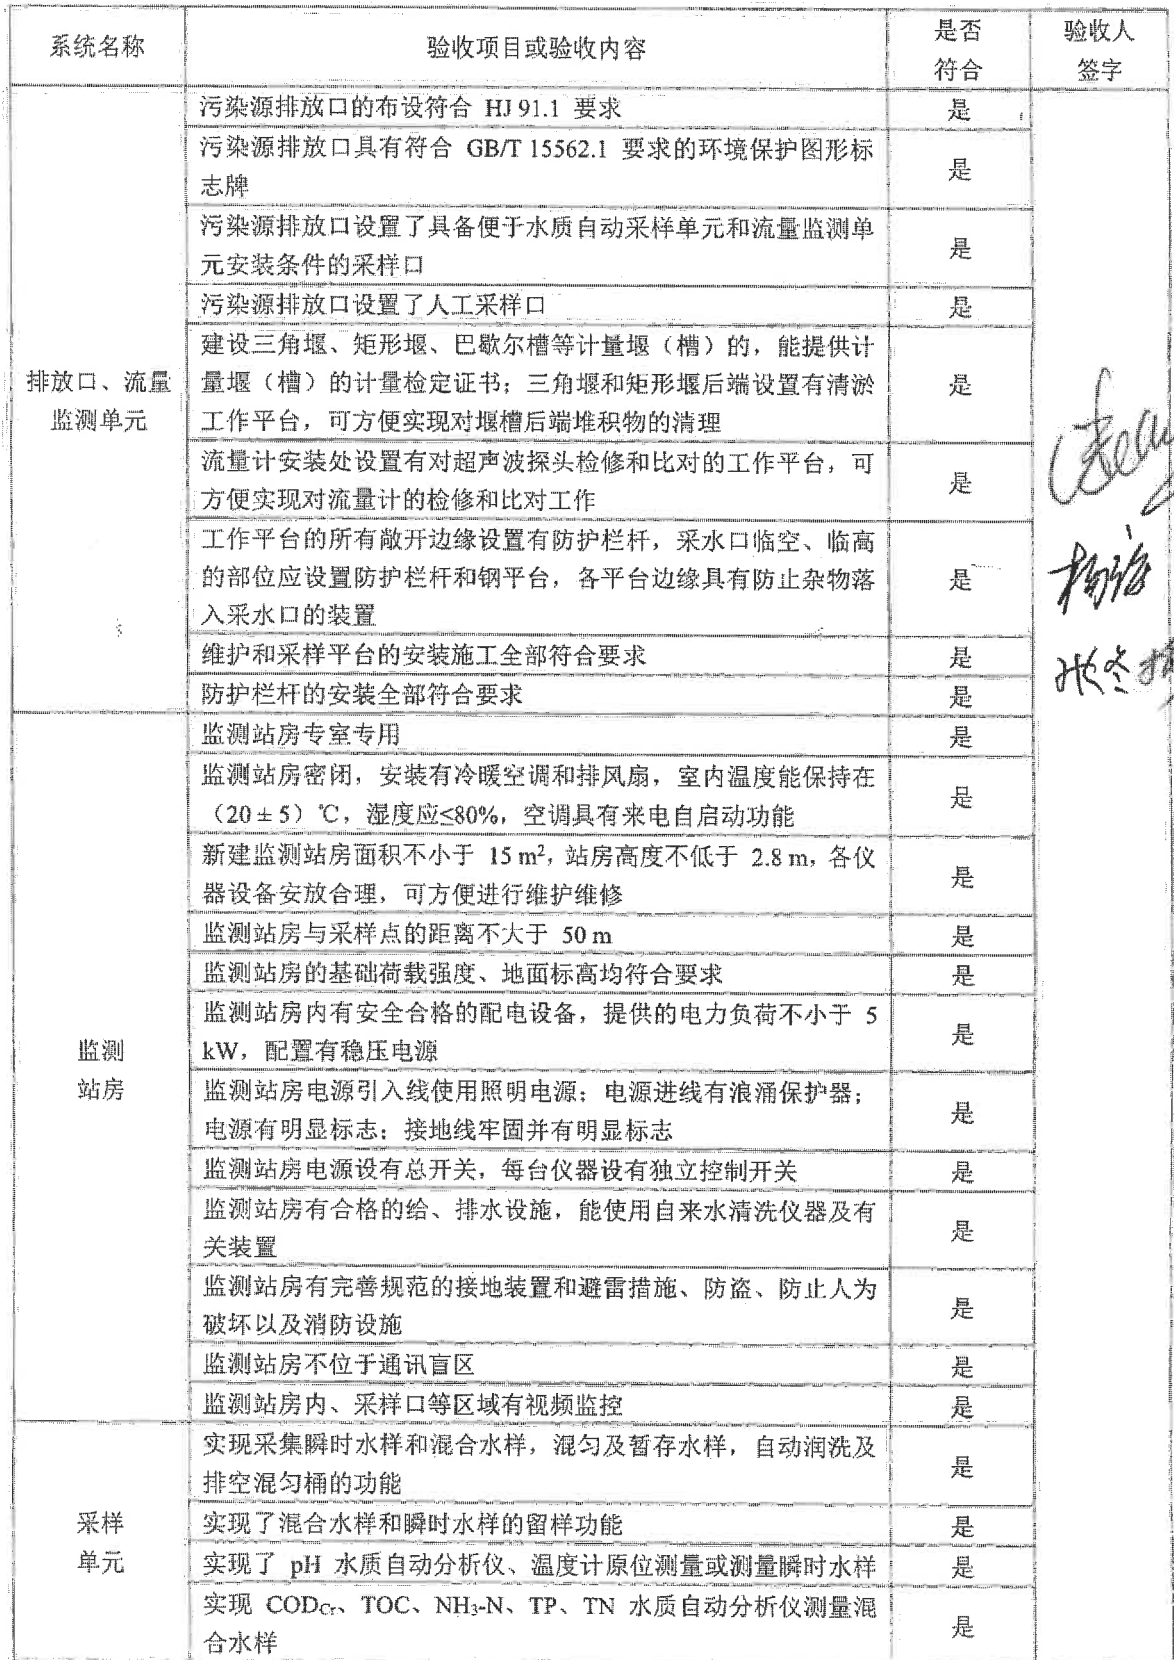 系统名称 验收项目或验收内容 是否 验收人
符合 签字
污染源排放口的布设符合 HJ 91.1 要求 是
污染源排放口具有符合 GB/T 15562.1 要求的环境保护图形标
志牌 是
污染源排放口设置了具备便于水质自动采样单元和流量监测单
元安装条件的采样口 是
污染源排放口设置了人工采样口 是
排放口、流量
监测单元
建设三角堰、矩形堰、巴歇尔槽等计量堰（槽）的，能提供计
量堰（槽）的计量检定证书；三角堰和矩形堰后端设置有清淤
工作平台，可方便实现对堰槽后端堆积物的清理 是
流量计安装处设置有对超声波探头检修和比对的工作平台，可
方便实现对流量计的检修和比对工作 是
工作平台的所有敞开边缘设置有防护栏杆，采水口临空、临高
的部位应设置防护栏杆和钢平台，各平台边缘具有防止杂物落
入采水口的装置 是
维护和采样平台的安装施工全部符合要求 是
防护栏杆的安装全部符合要求 是
监测站房专室专用 是
监测站房密闭，安装有冷暖空调和排风扇，室内温度能保持在
（20±5）℃，湿度应≤80%，空调具有来电自启动功能 是
新建监测站房面积不小于 15 m²，站房高度不低于 2.8 m，各仪
器设备安放合理，可方便进行维护维修 是
监测站房与采样点的距离不大于 50 m 是
监测站房的基础荷载强度、地面标高均符合要求 是
监测
站房
监测站房内有安全合格的配电设备，提供的电力负荷不小于 5
kW，配置有稳压电源 是
监测站房电源引入线使用照明电源；电源进线有浪涌保护器；
电源有明显标志；接地线牢固并有明显标志 是
监测站房电源设有总开关，每台仪器设有独立控制开关 是
监测站房有合格的给、排水设施，能使用自来水清洗仪器及有
关装置 是
监测站房有完善规范的接地装置和避雷措施、防盗、防止人为
破坏以及消防设施 是
监测站房不位于通讯盲区 是
监测站房内、采样口等区域有视频监控 是
采样
单元
实现采集瞬时水样和混合水样，混匀及暂存水样，自动润洗及
排空混匀桶的功能 是
实现了混合水样和瞬时水样的留样功能 是
实现了 pH 水质自动分析仪、温度计原位测量或测量瞬时水样 是
实现 CODCr、TOC、NH₃-N、TP、TN 水质自动分析仪测量混
合水样 是